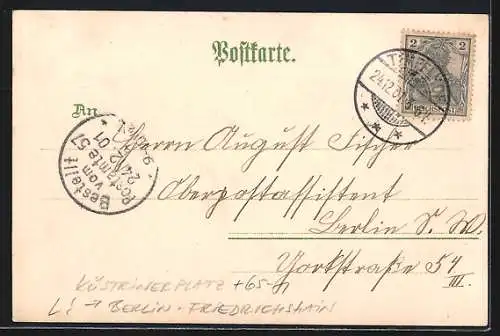 Postkarte.
2 2
24.12.01
An
Bestellt
vom
Postamte 57
24/12 01
Herrn August Fischer
Oberpostassistent
Berlin S. W.
Yorkstraße 54
III.
KÜSTRINERPLATZ +65-
L! → BERLIN-FRIEDRICHSHAIN